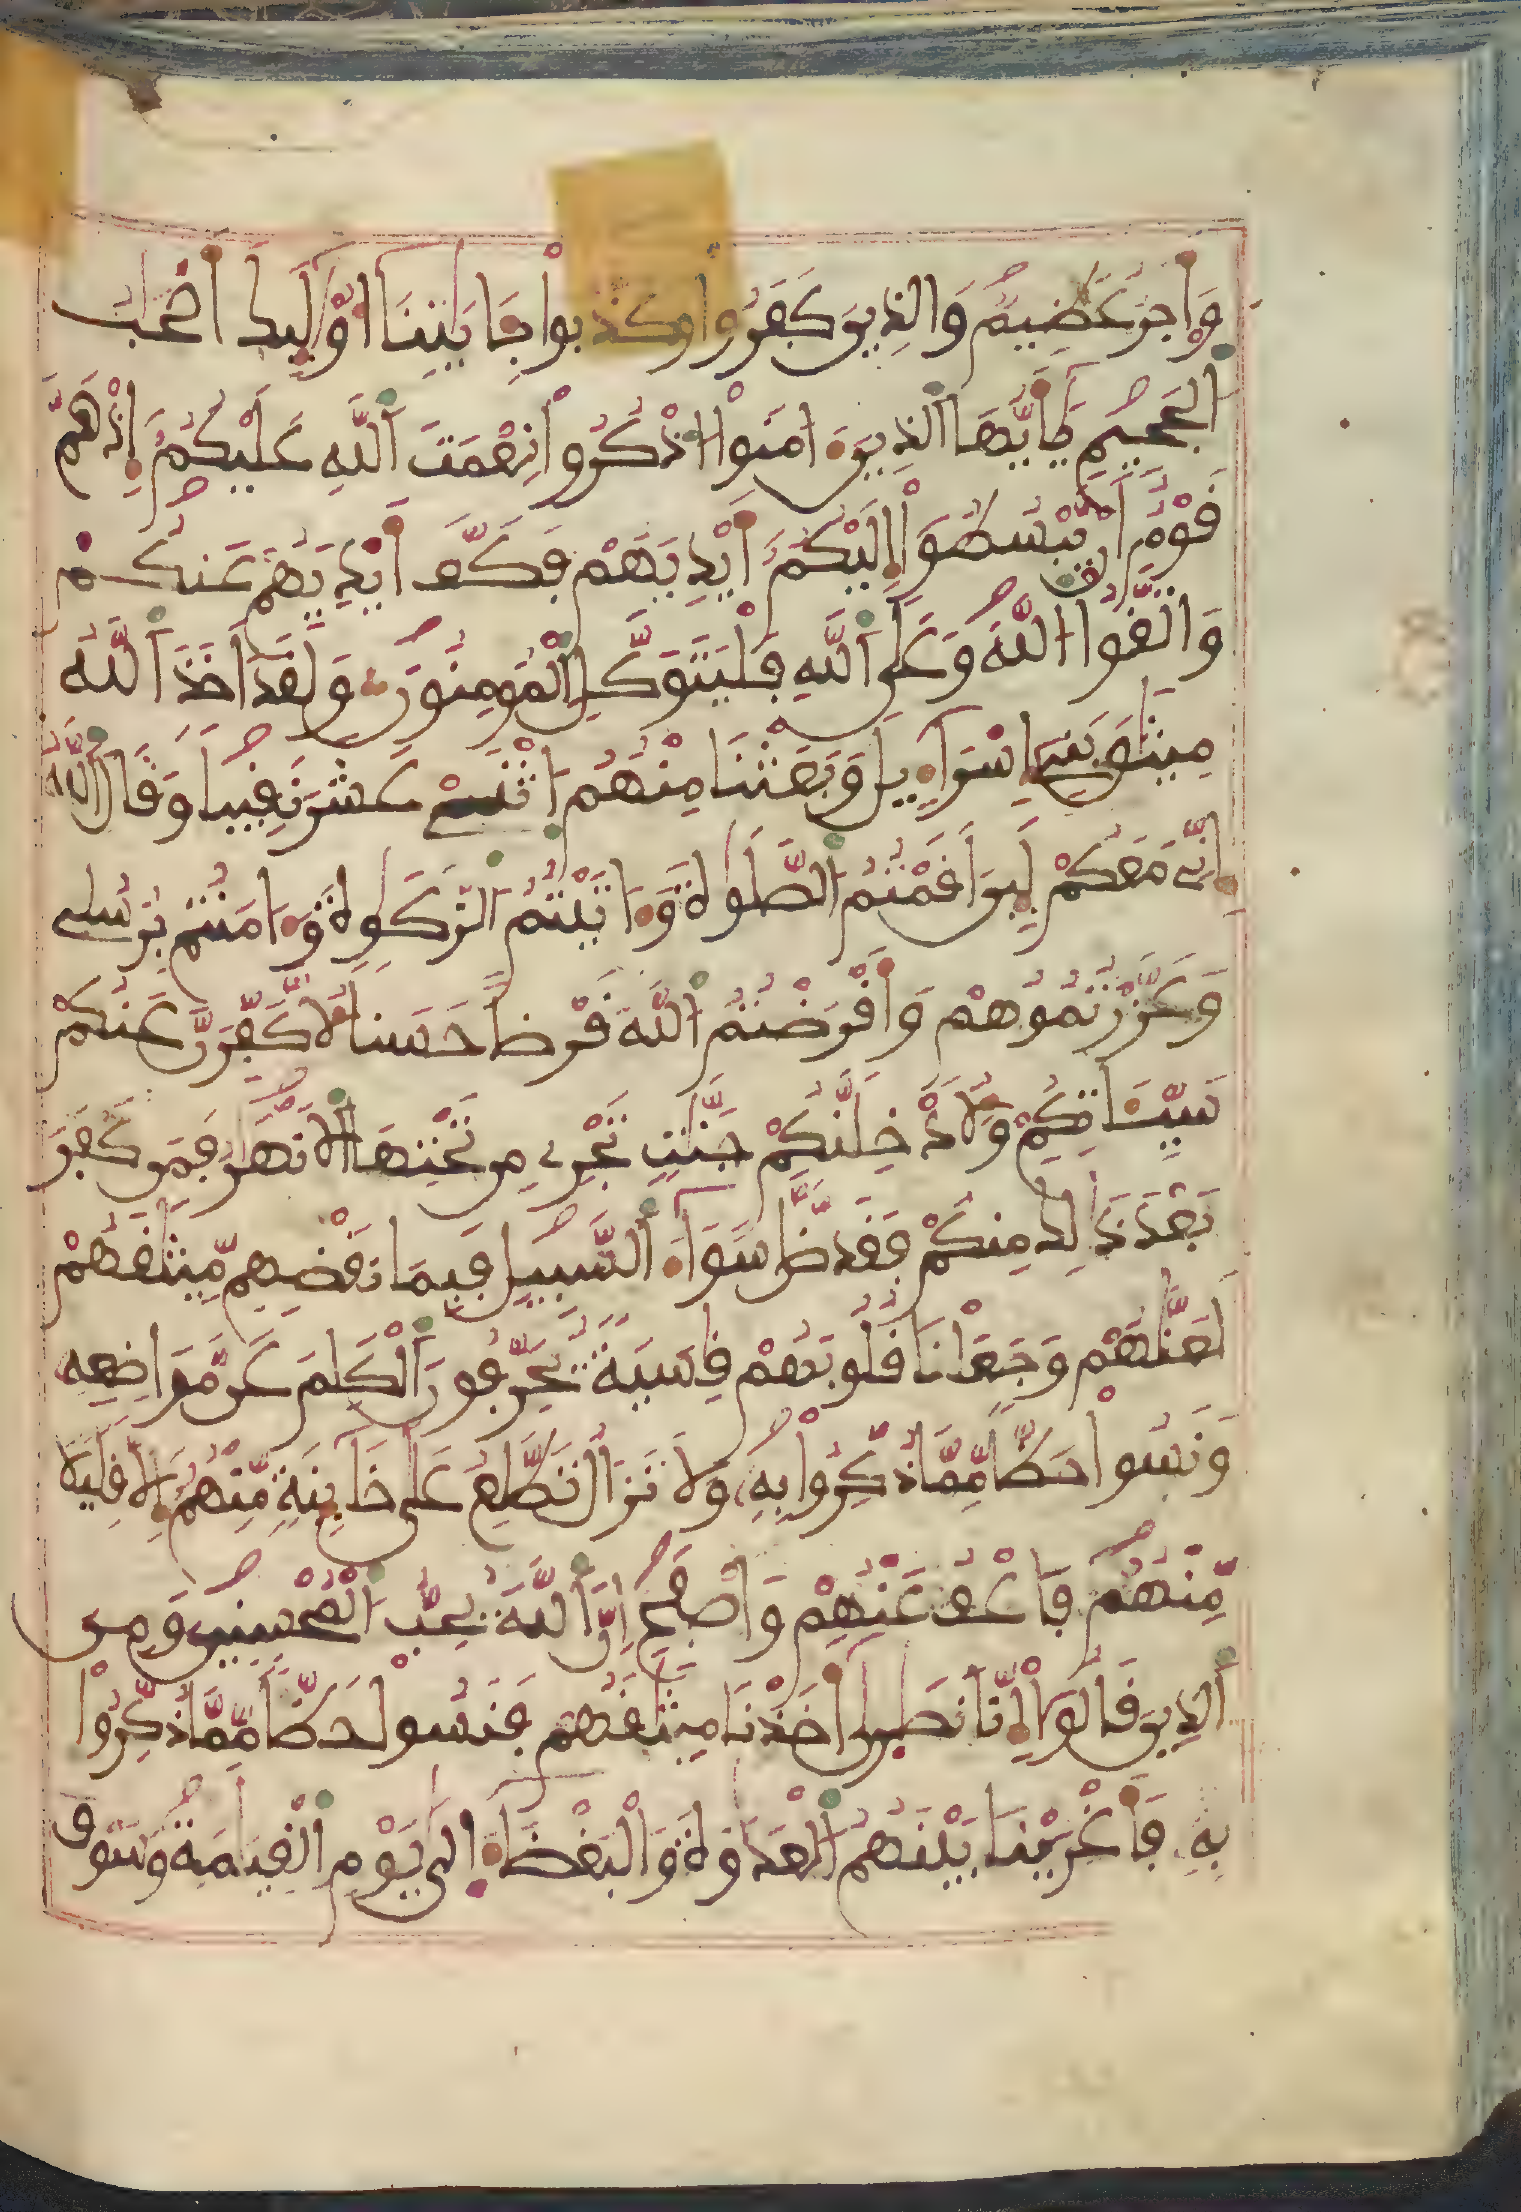 وَأَجْرٌ عَظِيمٌ وَالذِينَ كَفَرُوا وَكَذَّبُوا بِـَٔايَٰتِنَا أُوْلَٰئِكَ أَصْحَٰبُ
اَلْجَحِيمِ يَٰأَيُّهَا اَلذِينَ ءَامَنُوا اذْكُرُوا نِعْمَتَ اَللَّهِ عَلَيْكُمْ إِذْ هَمَّ
قَوْمٌ أَنْ يَّبْسُطُوا إِلَيْكُمْ أَيْدِيَهُمْ فَكَفَّ أَيْدِيَهُمْ عَنكُمْ
وَاتَّقُوا اللَّهَ وَعَلَى اَللَّهِ فَلْيَتَوَكَّلِ اِلْمُومِنُونَ وَلَقَدْ أَخَذَ اَللَّهُ
مِيثَٰقَ بَنِي إِسْرَآءِيلَ وَبَعَثْنَا مِنْهُمُ اثْنَيْ عَشَرَ نَقِيبًا وَقَالَ اَللَّهُ
إِنِّي مَعَكُمْ لَئِنَ اَقَمْتُمُ اُلصَّلَوٰةَ وَءَاتَيْتُمُ اُلزَّكَوٰةَ وَءَامَنتُم بِرُسُلِي
وَعَزَّرْتُمُوهُمْ وَأَقْرَضْتُمُ اُللَّهَ قَرْضًا حَسَنًا لَّأُكَفِّرَنَّ عَنكُمْ
سَيِّـَٔاتِكُمْ وَلَأُدْخِلَنَّكُمْ جَنَّٰتٍ تَجْرِي مِن تَحْتِهَا اَلْأَنْهَٰرُ فَمَن كَفَرَ
بَعْدَ ذَٰلِكَ مِنكُمْ فَقَد ضَّلَّ سَوَآءَ اَلسَّبِيلِ فَبِمَا نَقْضِهِم مِّيثَٰقَهُمْ
لَعَنَّٰهُمْ وَجَعَلْنَا قُلُوبَهُمْ قَٰسِيَةً يُحَرِّفُونَ اَلْكَلِمَ عَن مَّوَاضِعِهِ
وَنَسُوا حَظًّا مِّمَّا ذُكِّرُوا بِهِ وَلَا تَزَالُ تَطَّلِعُ عَلَىٰ خَآئِنَةٍ مِّنْهُمْ إِلَّا قَلِيلًا
مِّنْهُمْ فَاعْفُ عَنْهُمْ وَاصْفَحِ اِنَّ اَللَّهَ يُحِبُّ اُلْمُحْسِنِينَ وَمِنَ
اَلذِينَ قَالُوا إِنَّا نَصَٰرَىٰ أَخَذْنَا مِيثَٰقَهُمْ فَنَسُوا حَظًّا مِّمَّا ذُكِّرُوا
بِهِ فَأَغْرَيْنَا بَيْنَهُمُ اُلْعَدَٰوَةَ وَالْبَغْضَآءَ إِلَىٰ يَوْمِ اِلْقِيَٰمَةِ وَسَوْفَ